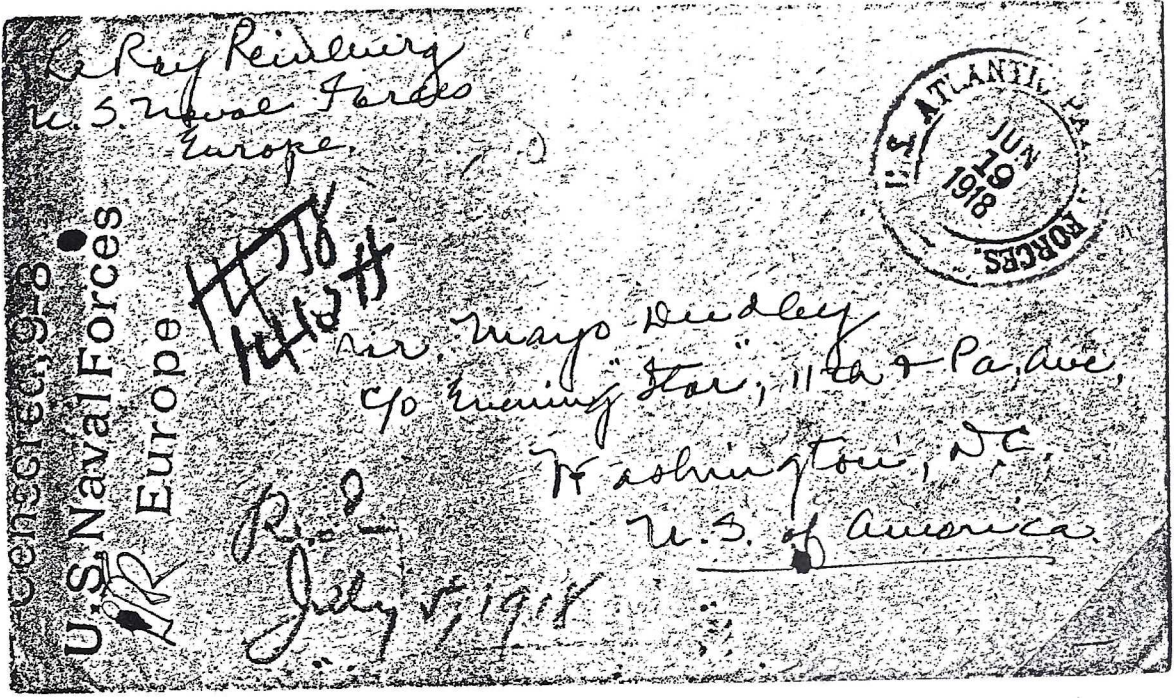 LeRoy Reinburg
U.S. Naval Forces
Europe.
Censored, 9-8
U.S. Naval Forces
Europe
U.S. ATLANTIC FORCES.
JUN
19
1918
Mr. Mayo Dudley
c/o Evening "Star", 11th & Pa, Ave,
Washington, D.C.
U.S. of America.
Rec'd
July 5, 1918